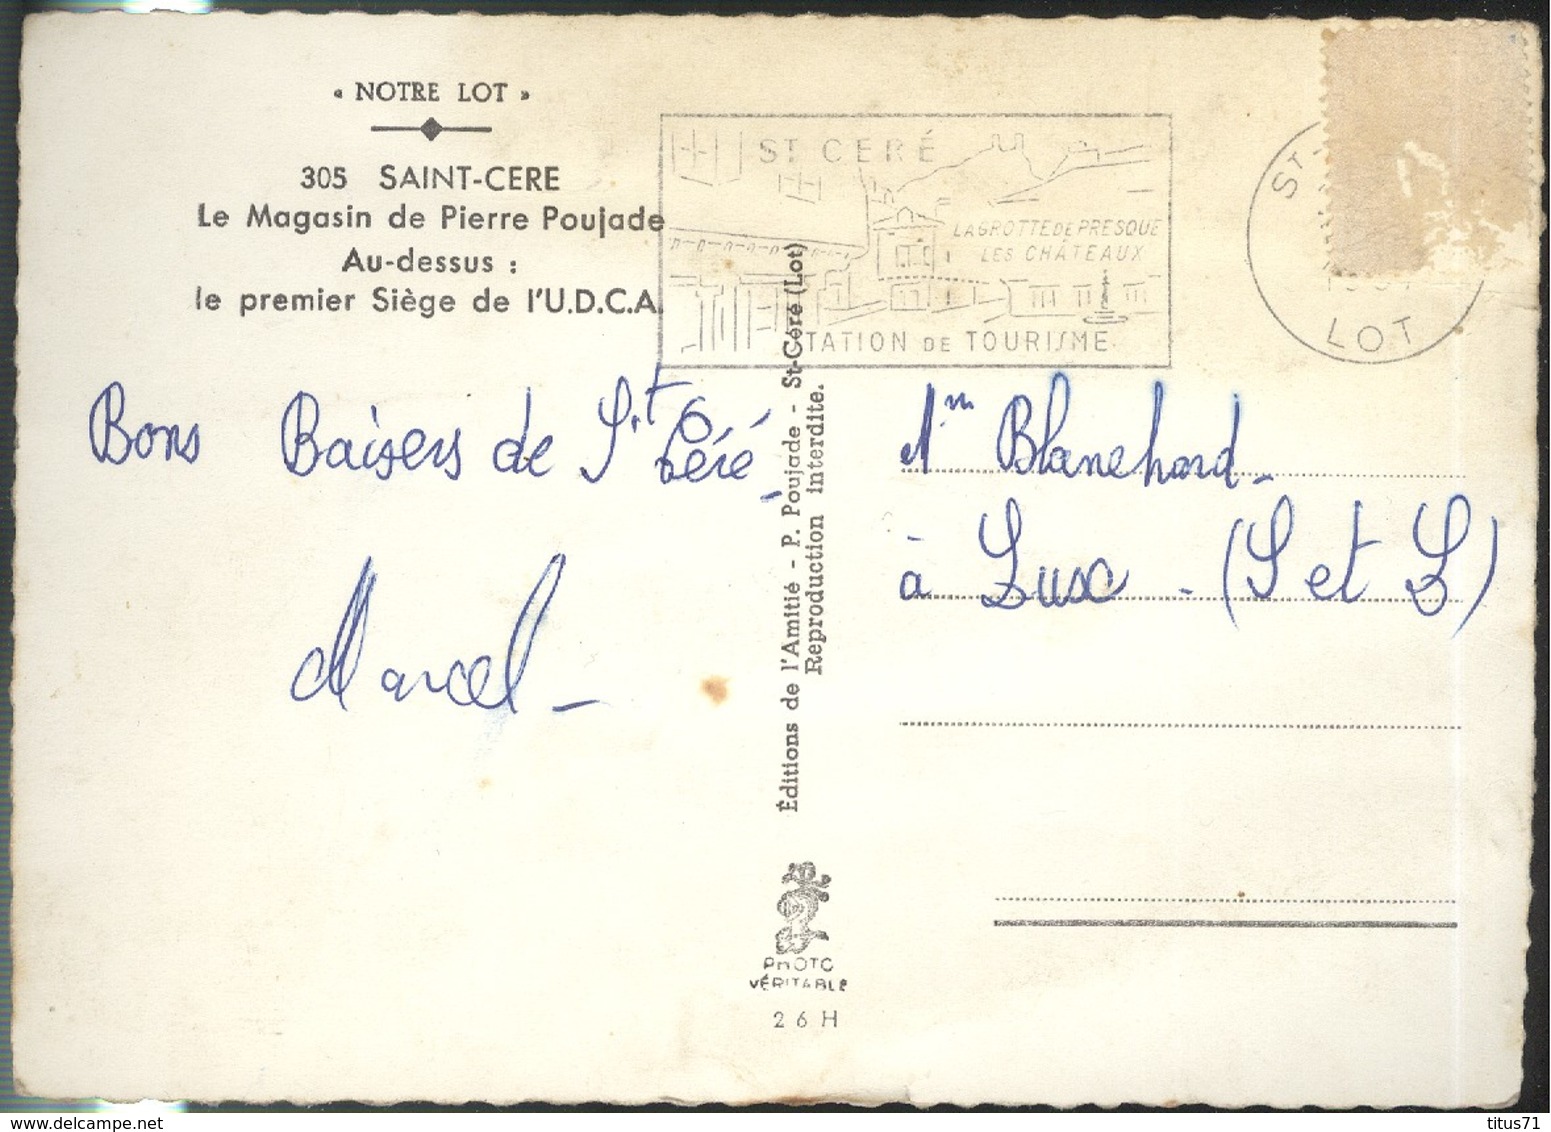 « NOTRE LOT »
305 SAINT-CERE
Le Magasin de Pierre Poujade
Au-dessus :
le premier Siège de l'U.D.C.A.
ST CERÉ
LA GROTTE DE PRESQUE
LES CHÂTEAUX
STATION DE TOURISME
ST
LOT
Bons Baisers de St Céré
Marcel
Éditions de l'Amitié - P. Poujade - St-Céré (Lot)
Reproduction interdite.
Mm Blanchard
à Lux - (S et L)
PHOTO
VÉRITABLE
26 H
delcampe.net
titus71